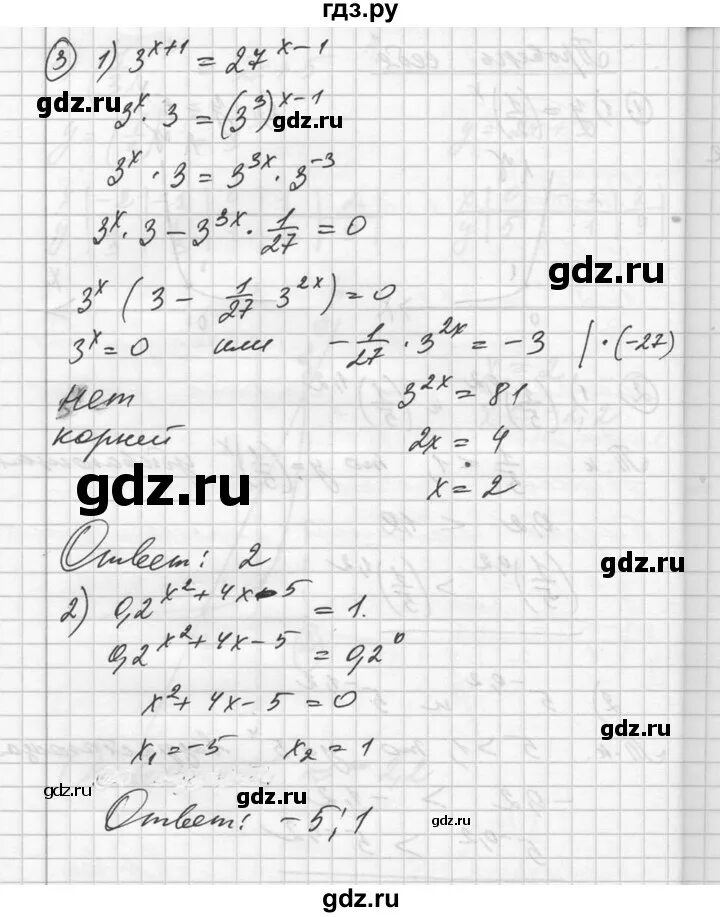 гдз.ру
③ 1) 3^{x+1} = 27^{x-1}
gdz.ru
3^x · 3 = (3^3)^{x-1}
gdz.ru
3^x · 3 = 3^{3x} · 3^{-3}
3^x · 3 - 3^{3x} · 1/27 = 0
gdz.ru
3^x (3 - 1/27 3^{2x}) = 0
3^x = 0 или -1/27 · 3^{2x} = -3 | · (-27)
нет 3^{2x} = 81
корней 2x = 4
gdz.ru
x = 2
Ответ: 2
gdz.ru
2) 0,2^{x^2+4x-5} = 1.
0,2^{x^2+4x-5} = 0,2^0
x^2 + 4x - 5 = 0
gdz.ru
x_1 = -5 x_2 = 1
gdz.ru
gdz.ru
Ответ: -5; 1
gdz.ru
gdz.ru
гдз.ру